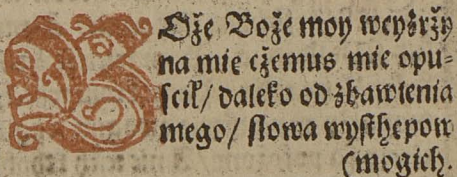 BOże Boże moy weyźrży
na mię cżemus mie opu-
scił/ daleko od zbawienia
mego/ słowa wysthepow
(mogich.